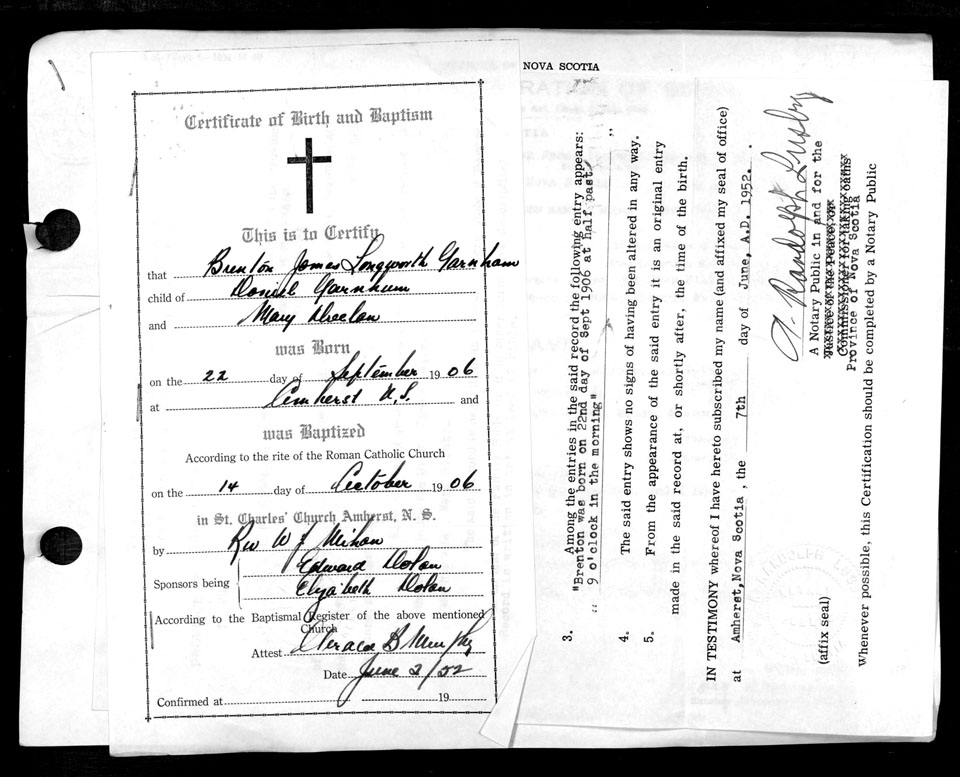 NOVA SCOTIA
Certificate of Birth and Baptism
This is to Certify
that Brenton James Longworth Garnham
child of Daniel Garnham
and Mary
was Born
on the 22 day of September 1906
at Amherst N.S. and
was Baptized
According to the rite of the Roman Catholic Church
on the 14 day of October 1906
in St. Charles' Church Amherst, N. S.
by Rev W J Mihan
Sponsors being Edward Dolan
Elizabeth Dolan
According to the Baptismal Register of the above mentioned
Church
Attest B Murphy
Date June 2/52
Confirmed at 19
3. Among the entries in the said record the following entry appears:
"Brenton was born on 22nd day of Sept 1906 at half past
9 o'clock in the morning"
4. The said entry shows no signs of having been altered in any way.
5. From the appearance of the said entry it is an original entry
made in the said record at, or shortly after, the time of the birth.
IN TESTIMONY whereof I have hereto subscribed my name (and affixed my seal of office)
at Amherst, Nova Scotia, the 7th day of June, A.D. 1952. .
Randolph Lusby
A Notary Public in and for the
Justice of the Peace, or
Commissioner for taking oaths
Province of Nova Scotia
(affix seal)
Whenever possible, this Certification should be completed by a Notary Public